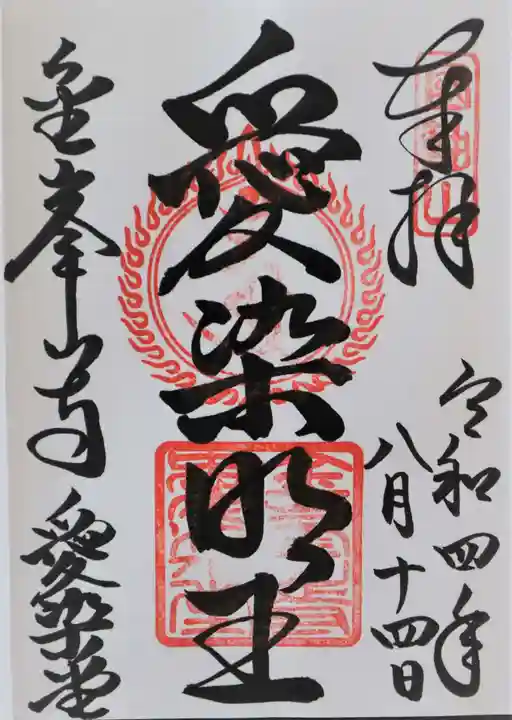 奉拝
令和四年
八月十四日
愛染明王
金峯山寺 愛染堂